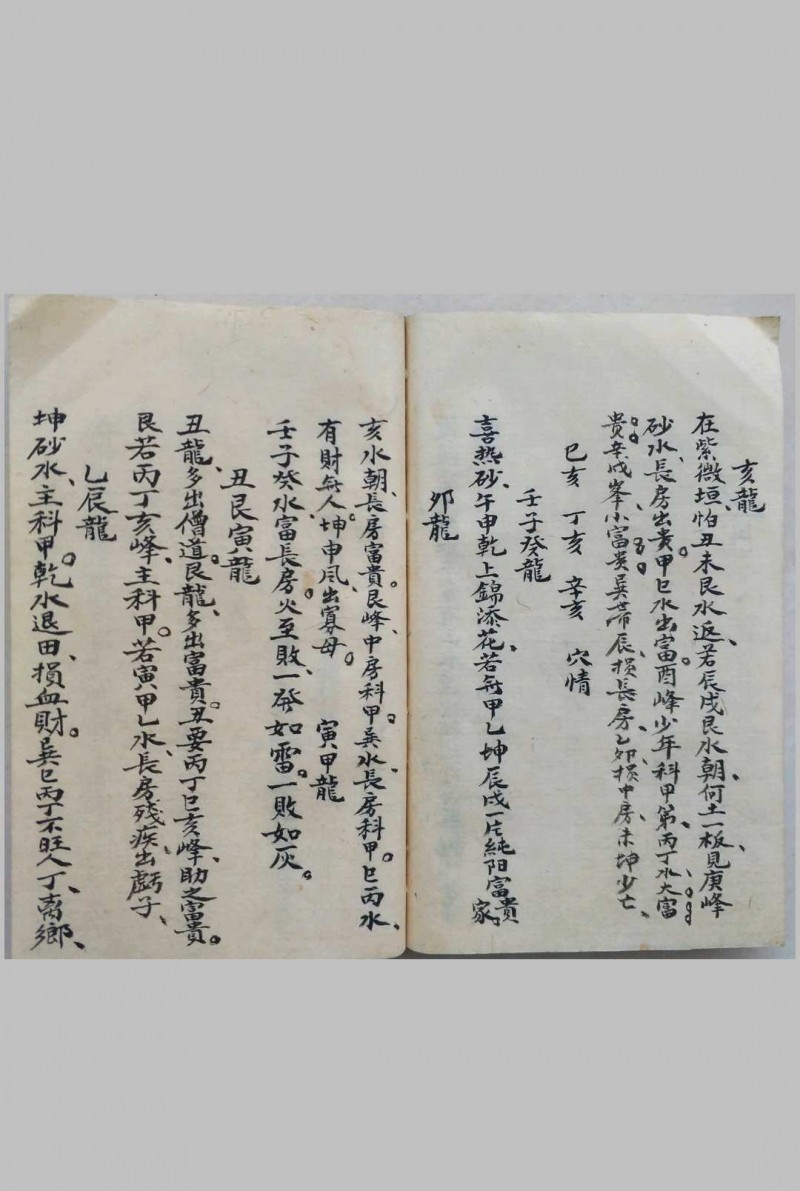 亥龍
在紫微垣、怕丑未艮水返、若辰戌艮水朝、何土一板見庚峰
砂水、長房出貴。甲巳水出富。酉峰少年科甲第、丙丁水大富
貴。辛戌峯、小富貴。巽 辰、損長房、乙卯損中房、未坤少亡、
巳亥 丁亥 辛亥 穴情
壬子癸龍
喜热砂、午甲乾上錦添花、若无甲乙坤辰戌一片純阳富貴家。
卯龍
亥水朝、長房富貴。艮峰、中房科甲。巽水、長房科甲。巳丙水、
有財无人、坤申風、出寡母。 寅甲龍
壬子癸水富長房。火至敗、一發如雷。一敗如灰。
丑艮寅龍
丑龍、多出僧道。艮龍、多出富貴。丑要丙丁巳亥峰、助之富貴。
艮若丙丁亥峰、主科甲。若寅甲乙水、長房残疾、出 子、
乙辰龍
坤砂水、主科甲。乾水退田、損血財。巽巳丙丁不旺人丁、离鄉、